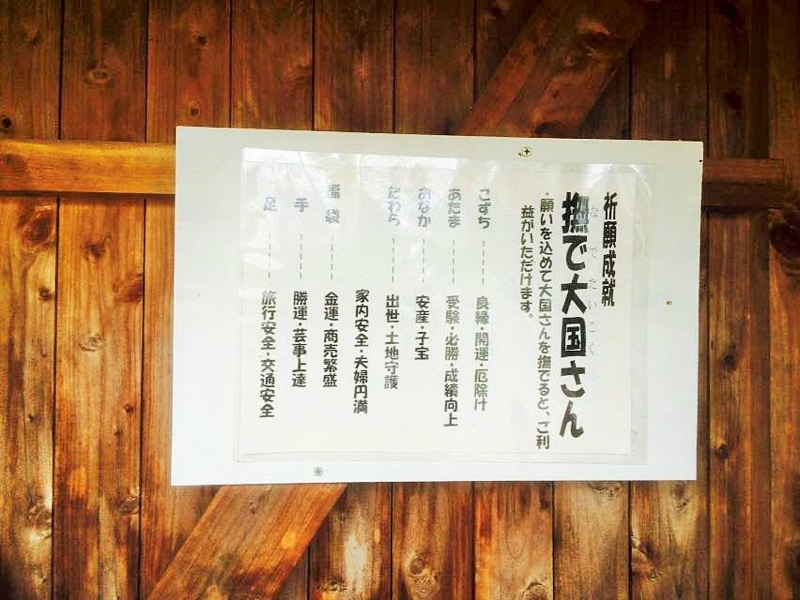 祈願成就
撫で大国さん
なでたいこく
・願いを込めて大国さんを撫でると、ご利
益がいただけます。
こずち ------ 良縁・開運・厄除け
あたま ------ 受験・必勝・成績向上
おなか ------ 安産・子宝
たわら ------ 出世・土地守護
家内安全・夫婦円満
福袋 ------ 金運・商売繁盛
手 ------ 勝運・芸事上達
足 ------ 旅行安全・交通安全